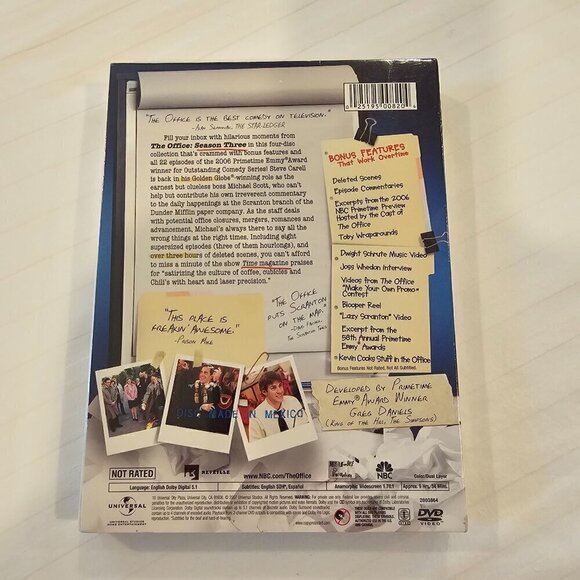 "THE OFFICE IS THE BEST COMEDY ON TELEVISION."
THE STAR LEDGER
Fill your inbox with hilarious moments from
The Office: Season Three in this four-disc
collection that's crammed with bonus features and
all 22 episodes of the 2006 Primetime Emmy® Award
winner for Outstanding Comedy Series! Steve Carell
is back in his Golden Globe®-winning role as the
earnest but clueless boss Michael Scott, who can't
help but contribute his own irreverent commentary
to the daily happenings at the Scranton branch of the
Dunder Mifflin paper company. As the staff deals
with potential office closures, mergers, romances and
advancement, Michael's always there to say all the
wrong things at the right times. Including eight
supersized episodes (three of them hourlongs), and
over three hours of deleted scenes, you can't afford
to miss a minute of the show Time magazine praises
for "satirizing the culture of coffee, cubicles and
Chili's with heart and laser precision."
"THE OFFICE
PUTS SCRANTON
ON THE MAP."
THE SCRANTON TIMES
"THIS PLACE IS
FREAKIN' AWESOME."
- PRISON MIKE
6 25195 00820 4
BONUS FEATURES
That Work Overtime
Deleted Scenes
Episode Commentaries
Excerpts from the 2006
NBC Primetime Preview
Hosted by the Cast of
The Office
Toby Wraparounds
Dwight Schrute Music Video
Joss Whedon Interview
Videos from The Office
"Make Your Own Promo"
Contest
Blooper Reel
"Lazy Scranton" Video
Excerpt from the
58th Annual Primetime
Emmy® Awards
Kevin Cooks Stuff in the Office
Bonus Features Not Rated, Not All Subtitled.
DEVELOPED BY PRIMETIME
EMMY® AWARD WINNER
GREG DANIELS
(KING OF THE HILL, THE SIMPSONS)
DISC MADE IN MEXICO
NOT RATED
REVEILLE
www.NBC.com/TheOffice
NBC
Color/Dual Layer
Language: English Dolby Digital 5.1
Subtitles: English SDH*, Español
Anamorphic Widescreen 1.78:1
UNIVERSAL
UNIVERSAL STUDIOS
DVD
VIDEO